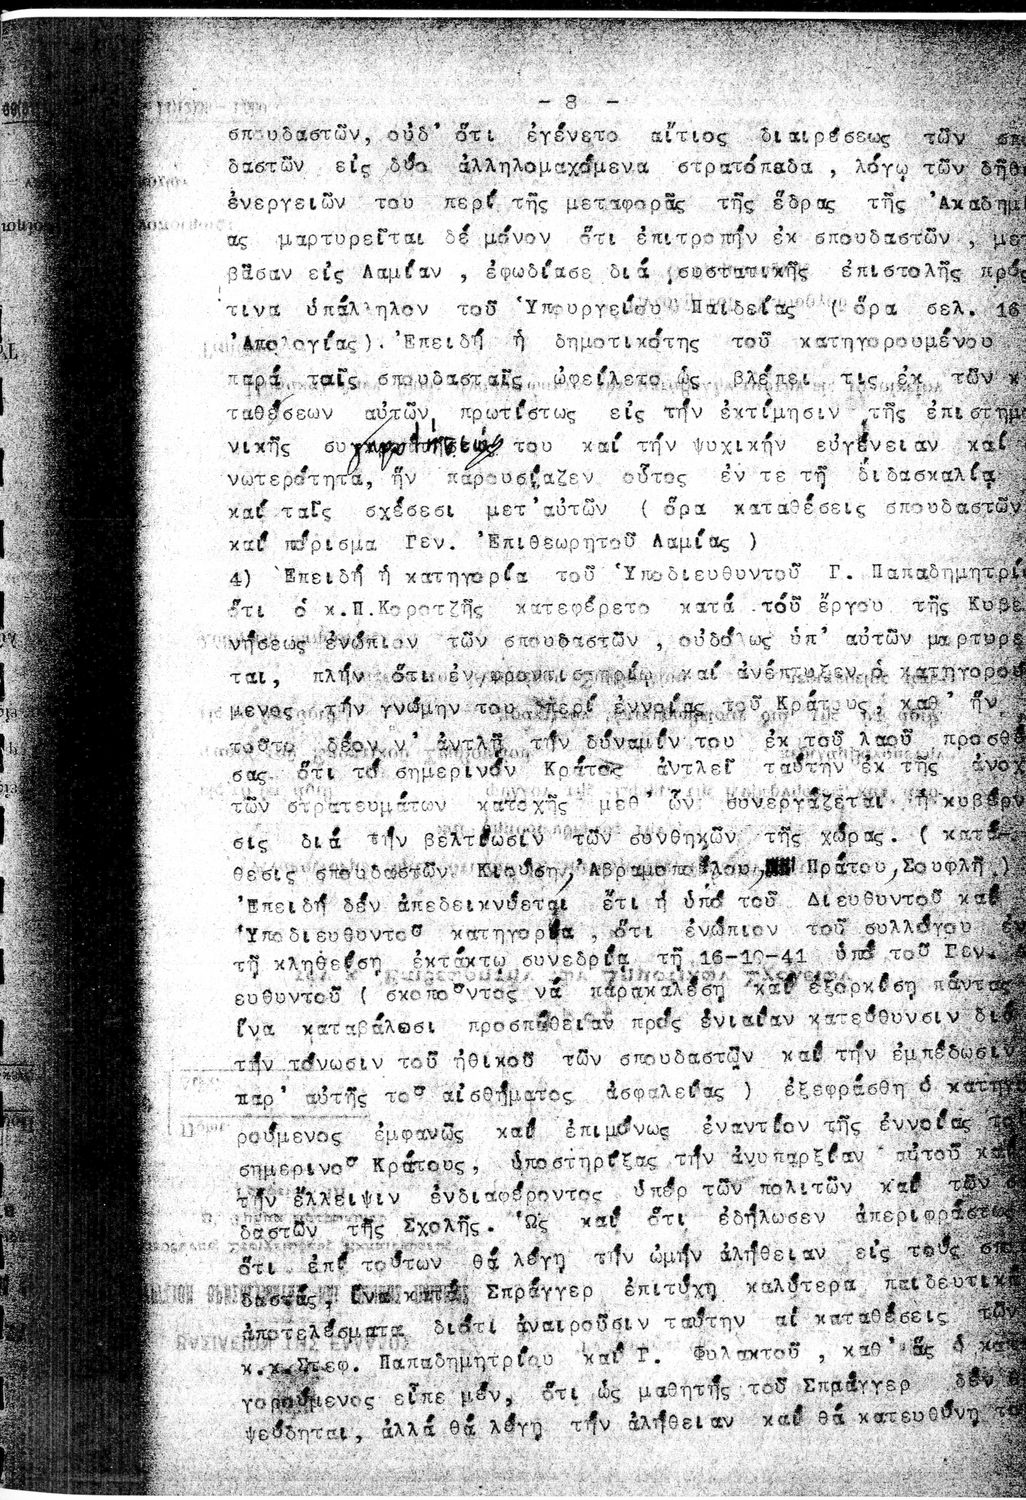 - 8 -
σπουδαστῶν, οὐδ' ὅτι ἐγένετο αἴτιος διαιρέσεως τῶν σπ
δαστῶν εἰς δύο ἀλληλομαχόμενα στρατόπεδα , λόγῳ τῶν δῆθ
ἐνεργειῶν του περί τῆς μεταφορᾶς τῆς ἕδρας τῆς 'Ακαδημ
ας μαρτυρεῖται δέ μόνον ὅτι ἐπιτροπήν ἐκ σπουδαστῶν , με
βᾶσαν εἰς Λαμίαν , ἐφωδίασε διά συστατικῆς ἐπιστολῆς πρός
τινα ὑπάλληλον τοῦ 'Υπουργείου Παιδείας ( ὅρα σελ. 16
'Απολογίας). 'Επειδή ἡ δημοτικότης τοῦ κατηγορουμένου
παρά ταῖς σπουδασταῖς ὠφείλετο ὡς βλέπει τις ἐκ τῶν κ
ταθέσεων αὐτῶν πρωτίστως εἰς τήν ἐκτίμησιν τῆς ἐπιστημ
νικῆς συγκροτήσεώς του καί τήν ψυχικήν εὐγένειαν καί
νωτερότητα, ἥν παρουσίαζεν οὗτος ἐν τε τῇ διδασκαλίᾳ
καί ταῖς σχέσεσι μετ'αὐτῶν ( ὅρα καταθέσεις σπουδαστῶν
καί πόρισμα Γεν. 'Επιθεωρητοῦ Λαμίας )
4) 'Επειδή ἡ κατηγορία τοῦ 'Υποδιευθυντοῦ Γ. Παπαδημητρί
ὅτι ὁ κ.Π.Κορτζῆς κατεφέρετο κατά τοῦ ἔργου τῆς Κυβε
νήσεως ἐνώπιον τῶν σπουδαστῶν , οὐδόλως ὑπ' αὐτῶν μαρτυρε
ται, πλήν ὅτι ἐν φροντιστηρίῳ καί ἀνέπτυξεν ὁ κατηγορού
μενος τήν γνώμην του περί ἐννοίας τοῦ Κράτους, καθ' ἥν
τοῦτο δέον ν' ἀντλῇ τήν δύναμίν του ἐκ τοῦ λαοῦ προσθέ
σας ὅτι τό σημερινόν Κράτος ἀντλεῖ ταύτην ἐκ τῆς ἀνοχ
τῶν στρατευμάτων κατοχῆς μεθ' ὧν συνεργάζεται ἡ κυβέρν
σις διά τήν βελτίωσιν τῶν συνθηκῶν τῆς χώρας. ( κατά-
θεσις σπουδαστῶν Κιούση, 'Αβραμοπούλου, Πράτου, Σουφλῆ )
'Επειδή δέν ἀπεδεικνύεται ἔτι ἡ ὑπό τοῦ Διευθυντοῦ καί
'Υποδιευθυντοῦ κατηγορία , ὅτι ἐνώπιον τοῦ συλλόγου ἐν
τῇ κληθείσῃ ἐκτάκτῳ συνεδρίᾳ τῇ 16-10-41 ὑπό τοῦ Γεν.
ευθυντοῦ ( σκοποῦντος νά παρακαλέσῃ καί ἐξορκίσῃ πάντας
ἵνα καταβάλωσι προσπάθειαν πρός ἑνιαίαν κατεύθυνσιν διά
τήν τόνωσιν τοῦ ἠθικοῦ τῶν σπουδαστῶν καί τήν ἐμπέδωσιν
παρ' αὐτῆς τοῦ αἰσθήματος ἀσφαλείας ) ἐξεφράσθη ὁ κατηγ
ρούμενος ἐμφανῶς καί ἐπιμόνως ἐναντίον τῆς ἐννοίας το
σημερινοῦ Κράτους, ὑποστηρίξας τήν ἀνυπαρξίαν αὐτοῦ καί
τήν ἔλλειψιν ἐνδιαφέροντος ὑπέρ τῶν πολιτῶν καί τῶν σ
δαστῶν τῆς Σχολῆς. 'Ως καί ὅτι ἐδήλωσεν ἀπεριφράστως
ὅτι ἐπί τούτων θά λέγῃ τήν ὠμήν ἀλήθειαν εἰς τούς σπ
δαστάς, ἵνα κατά Σπράγγερ ἐπιτύχῃ καλύτερα παιδευτικά
ἀποτελέσματα διότι ἀναιροῦσιν ταύτην αἱ καταθέσεις τῶν
κ.κ.Στεφ. Παπαδημητρίου καί Γ. Φυλακτοῦ , καθ' ἅς ὁ κατ
γορούμενος εἶπε μέν, ὅτι ὡς μαθητής τοῦ Σπράγγερ δέν θ
ψεύδηται, ἀλλά θά λέγῃ τήν ἀλήθειαν καί θά κατευθύνῃ το